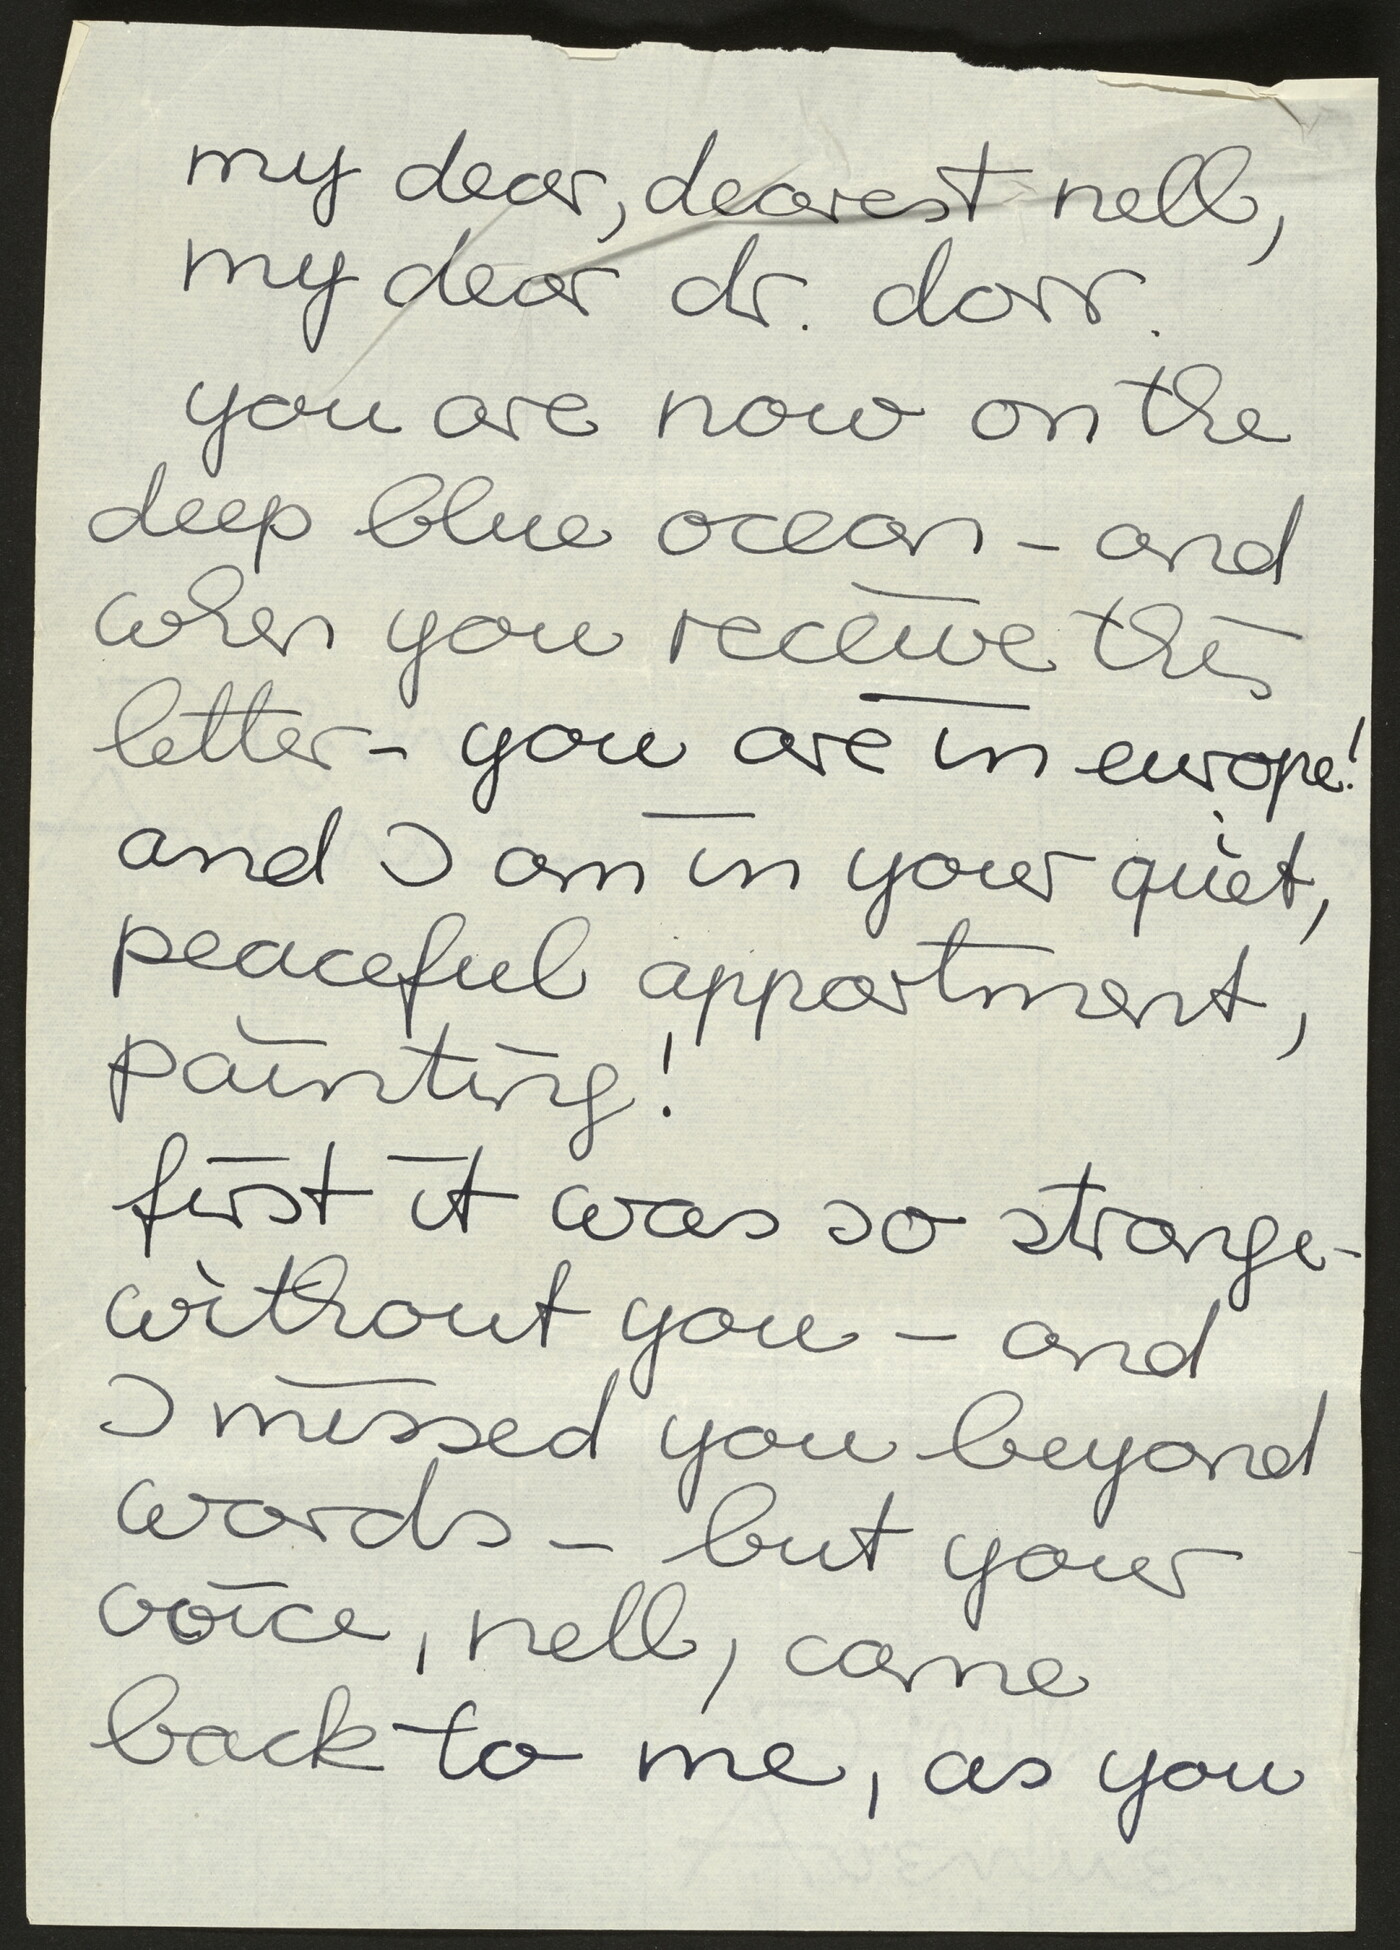 my dear, dearest nell,
my dear dr. dorr.
you are now on the
deep blue ocean – and
when you receive this
letter – you are in europe!
and I am in your quiet,
peaceful appartment,
painting!
first it was so strange –
without you – and
I missed you beyond
words – but your
voice, nell, came
back to me, as you